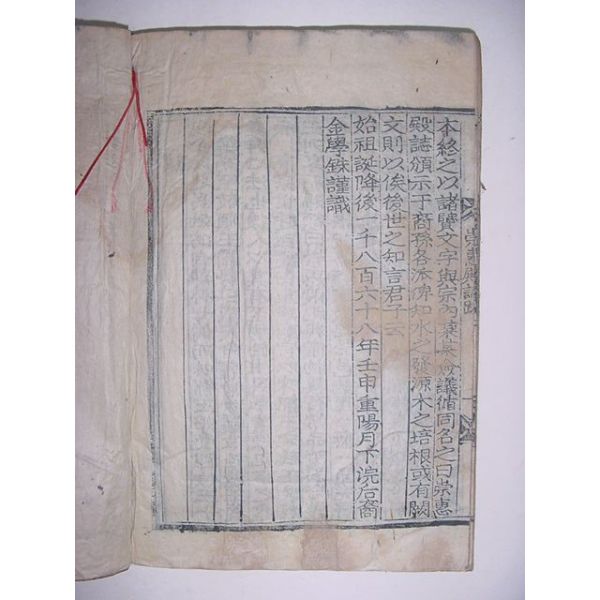 本終之以諸賢文字與宗內僉議循同名之曰崇惠
殿誌頒示于裔孫各派俾知水之發源木之培根或有闕
文則以俟後世之知言君子云
始祖誕降後一千八百六十八年壬申重陽月下浣后裔
金學銖謹識
崇惠殿誌跋